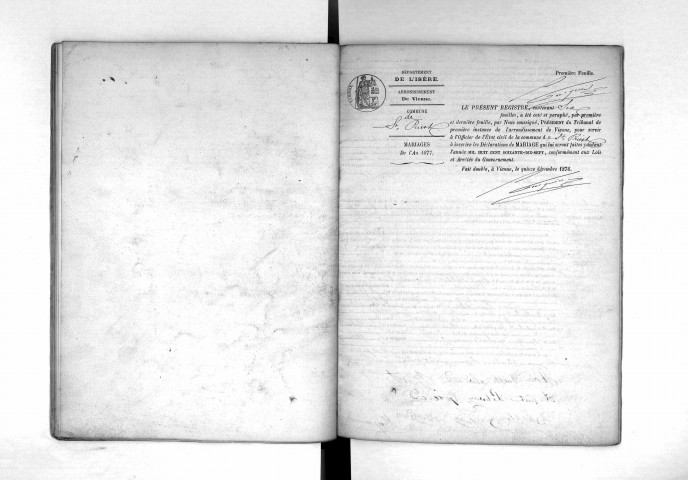 DÉPARTEMENT
DE L'ISÈRE.
ARRONDISSEMENT
De Vienne.
COMMUNE
de
St Priest
MARIAGES
De l'An 1877.
Première Feuille.
LE PRÉSENT REGISTRE, contenant Six
feuilles, a été coté et paraphé, par première
et dernière feuille, par Nous soussigné, PRÉSIDENT du Tribunal de
première instance de l'arrondissement de Vienne, pour servir
à l'Officier de l'État civil de la commune d e St Priest
à inscrire les Déclarations de MARIAGE qui lui seront faites pendant
l'année MIL HUIT CENT SOIXANTE-DIX-SEPT, conformément aux Lois
et Arrêtés du Gouvernement.
Fait double, à Vienne, le quinze décembre 1876.